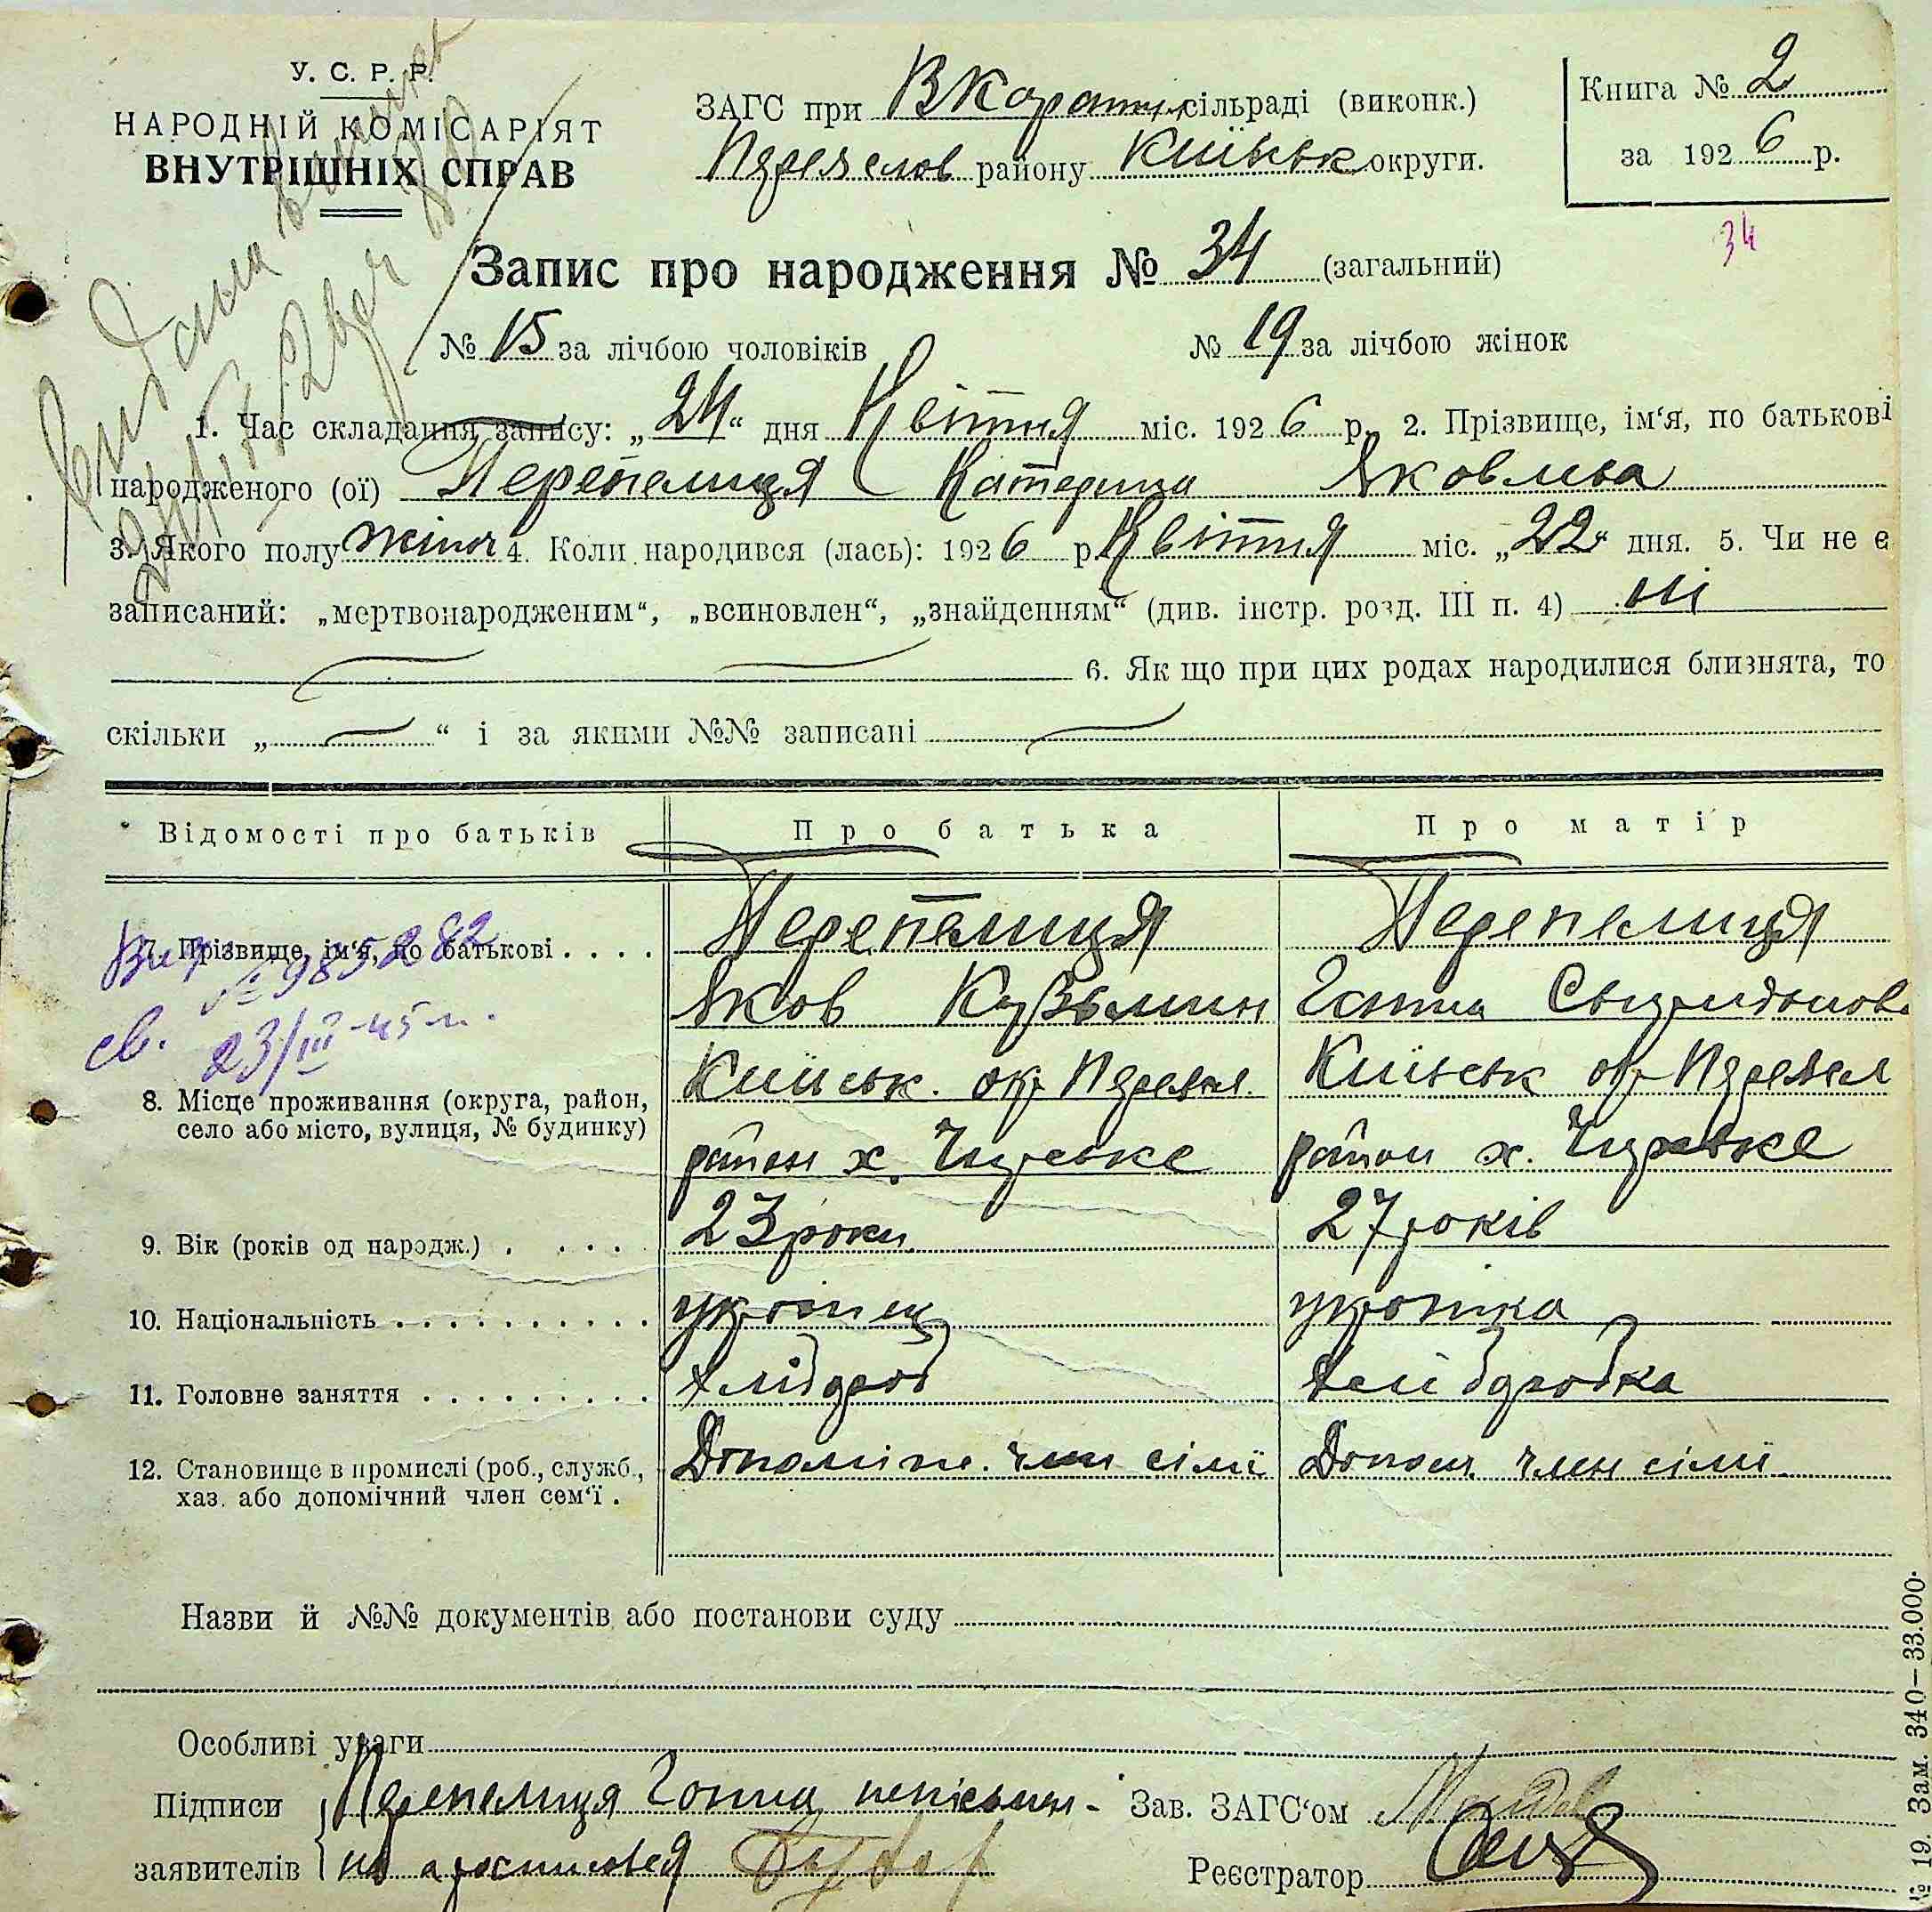 У. С. Р. Р.
НАРОДНІЙ КОМІСАРІЯТ
ВНУТРІШНІХ СПРАВ
ЗАГС при сільраді (виконк.)
району округи.
Книга № 2
за 1926 р.
34
Запис про народження № 34 (загальний)
№ 15 за лічбою чоловіків № 19 за лічбою жінок
1. Час складання запису: „24“ дня Квітня міс. 1926 р. 2. Прізвище, ім‘я, по батькові
народженого (ої) Перепелиця Катерина Яковлева
3. Якого полу жіноч 4. Коли народився (лась): 1926 р. Квітня міс. „22“ дня. 5. Чи не є
записаний: „мертвонародженим“, „всиновлен“, „знайденням“ (див. інстр. розд. III п. 4) ні
6. Як що при цих родах народилися близнята, то
скільки „ “ і за якими №№ записані
Відомості про батьків Про батька Про матір
7. Прізвище, ім‘я, по батькові . . . . Перепелиця Перепелиця
Яков Кузьмин Ганна
№ 985282
св. 23/III-45 г.
8. Місце проживання (округа, район, село або місто, вулиця, № будинку) Київськ. окр Переясл. Київськ окр Переясл
район х. Чирське район х. Чирське
9. Вік (років од народж.) . . . . 23 роки 27 років
10. Національність . . . . . . . . . . українец українка
11. Головне заняття . . . . . . . . . хлібороб хліборобка
12. Становище в промислі (роб., служб., хаз. або допомічний член сем‘ї . Допоміжн. член сімї Допом. член сімї
Назви й №№ документів або постанови суду
Особливі уваги
Підписи Перепелиця Ганна неписьмен- Зав. ЗАГС‘ом
заявителів на а росписовся Реєстратор
№ 19 Зам. 340—33.000.